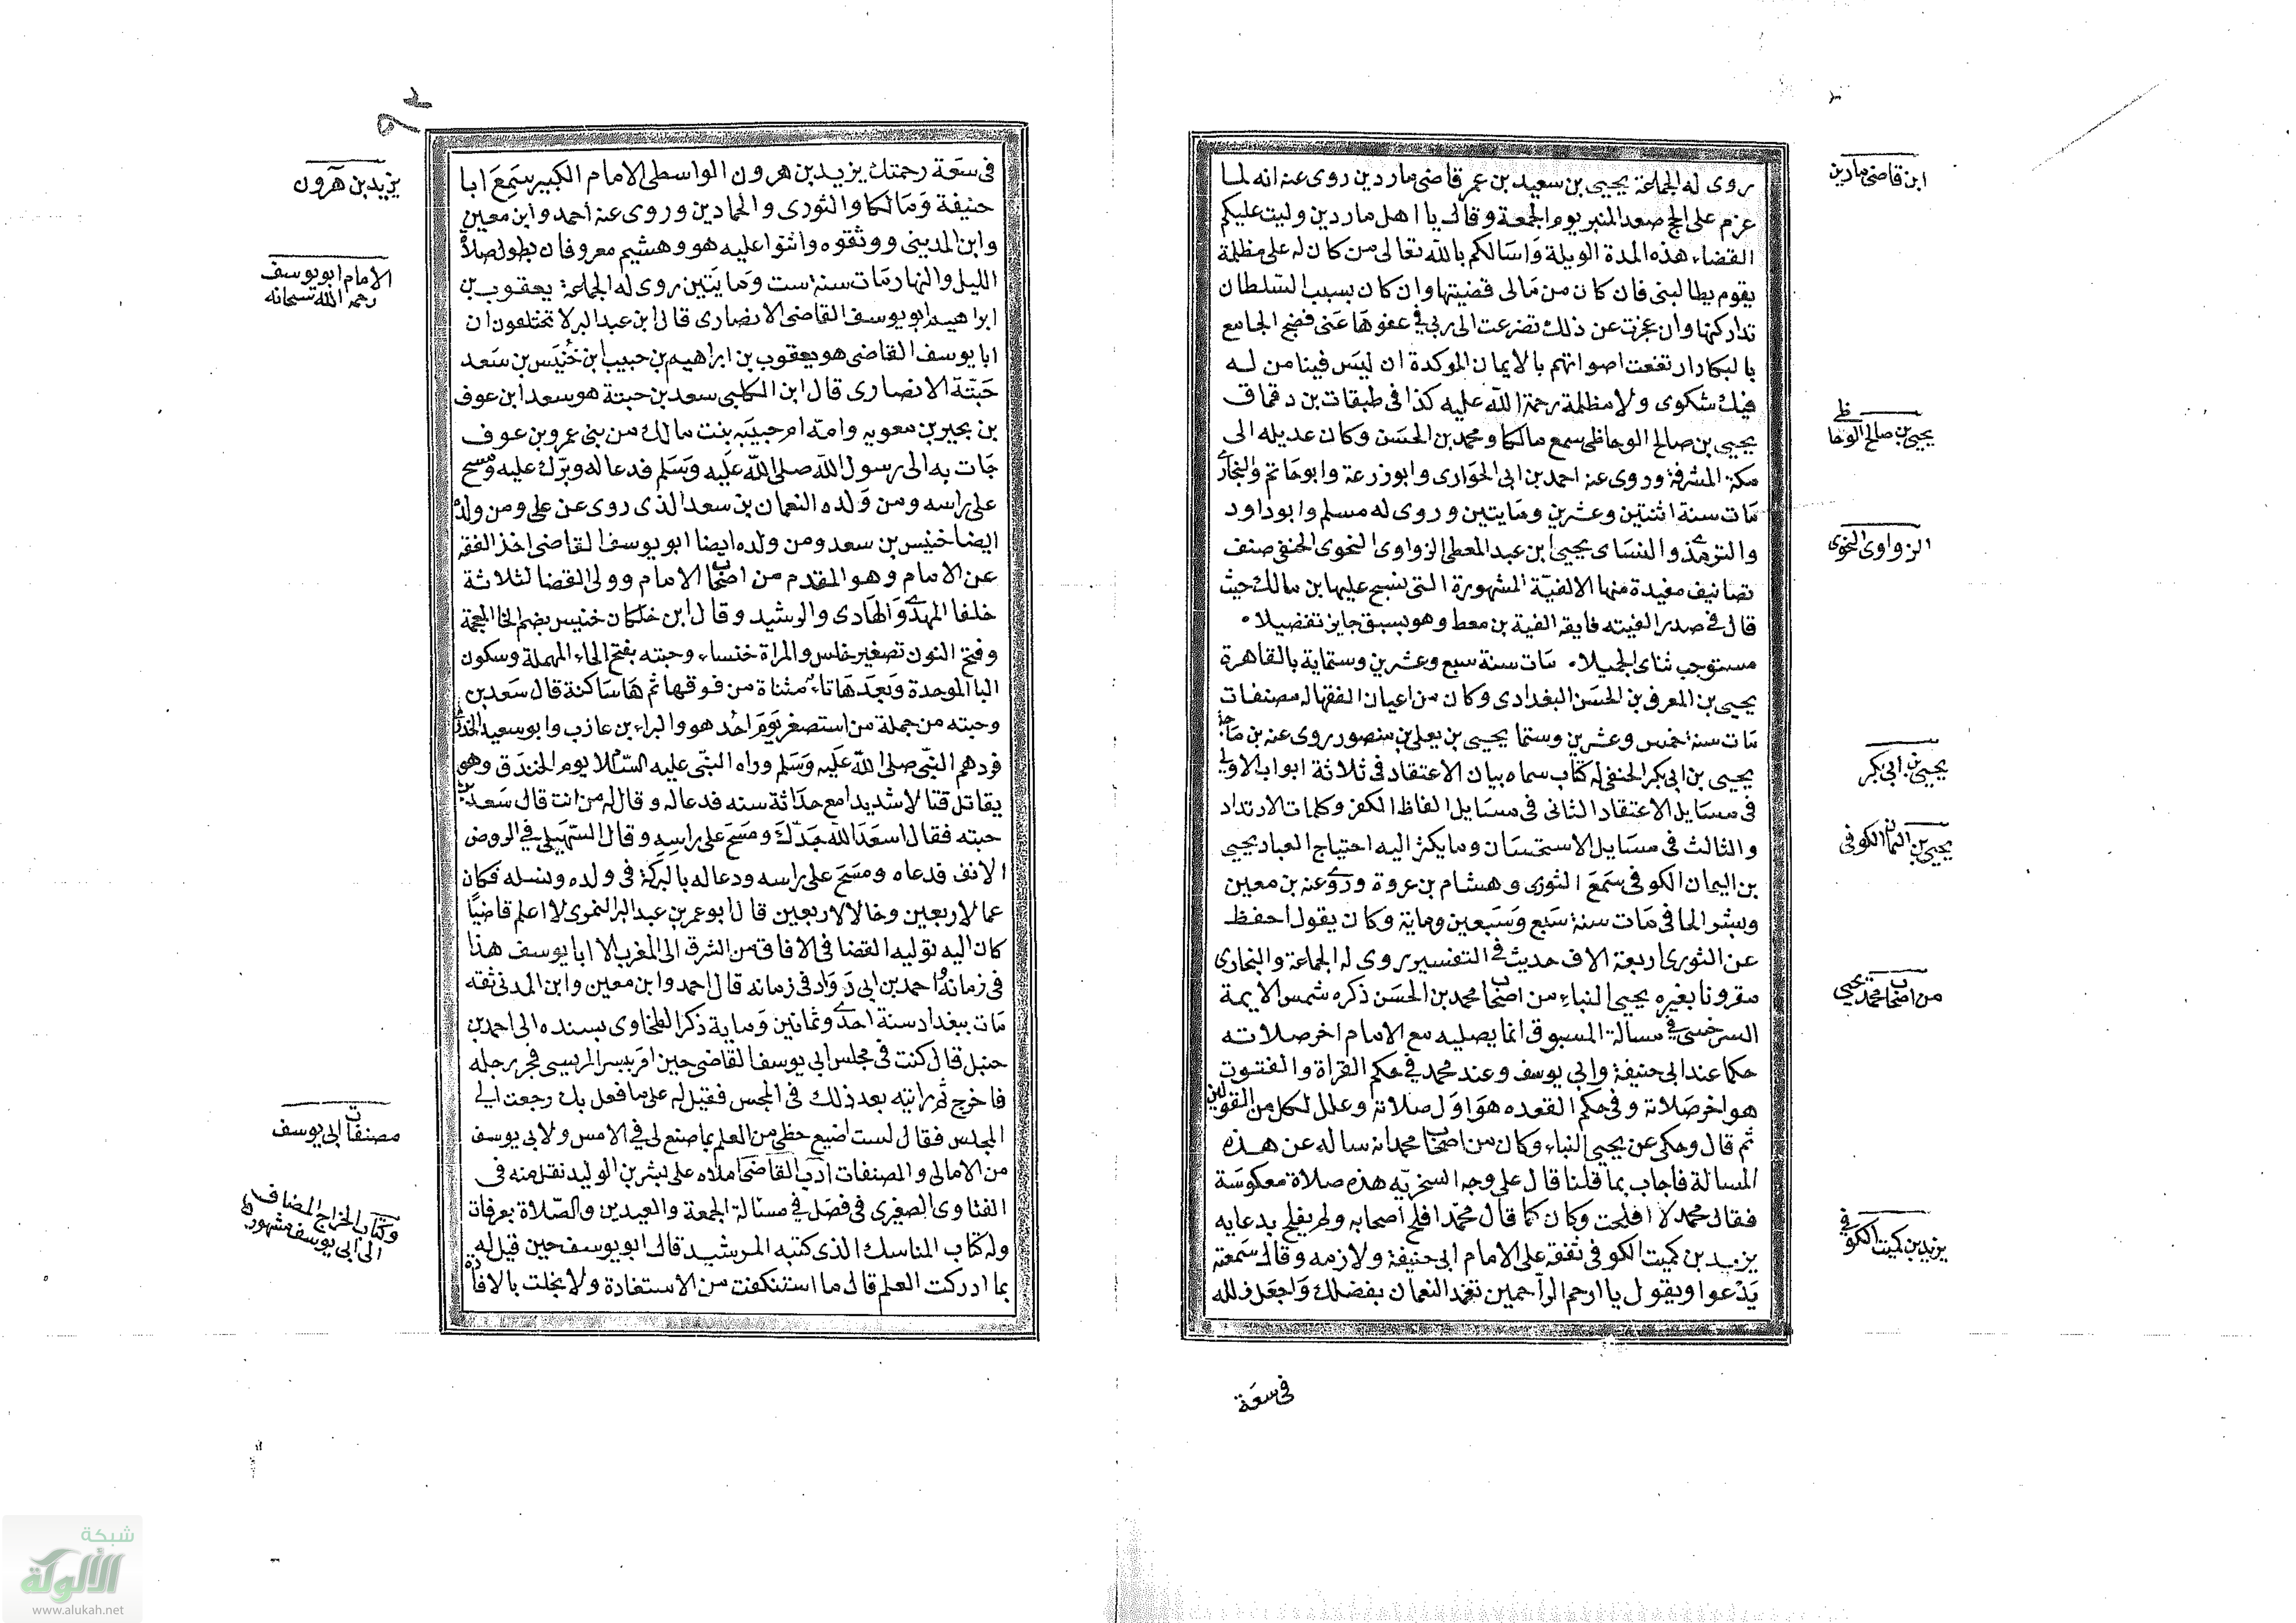 ابن قاضى ماردين
روى له الجماعة يحيى بن سعيد بن عمر قاضى ماردين روى عنه انه لما
عزم على الحج صعد المنبر يوم الجمعة وقال يا اهل ماردين وليت عليكم
القضاء هذه المدة الويلة واسالكم بالله تعالى من كان له على مظلمة
يقوم يطالبنى فان كان من مالى قضيتها وان كان بسبب السلطان
تداركتها وان عجزت عن ذلك تضرعت الى ربي في عفوها عنى فضج الجامع
بالبكاء ارتفعت اصواتهم بالايمان الموكدة ان ليس فينا من له
قبلك شكوى ولا مظلمة رحمة الله عليه كذا فى طبقات بن دقماق
يحيى بن صالح الوحاظى
يحيى بن صالح الوحاظى سمع مالكا ومحمد بن الحسن وكان عديله الى
مكة المشرفة وروى عنه احمد بن ابى الحوارى وابو زرعة وابو حاتم والبخارى
مات سنة اثنتين وعشرين ومايتين وروى له مسلم وابو داود
الزواوى النحوى
والترمذى والنساى يحيى ابن عبد المعطى الزواوى النحوى الحنفى صنف
تصانيف مفيدة منها الالفية المشهورة التى ينسج عليها بن مالك حيث
قال فى صدر الفيته فايقه الفية بن معط وهو بسبق جايز تفضيلا ٠
مستوجب ثناى الجميلا ٠ مات سنة سبع وعشرين وستماية بالقاهرة
يحيى بن المعرف بن الحسن البغدادى وكان من اعيان الفقها له مصنفات
مات سنة خمس وعشرين وستما يحيى بن يعلى بن منصور روى عنه بن ماجة
يحيى بن ابى بكر
يحيى بن ابى بكر الحنفى له كتاب سماه بيان الاعتقاد فى ثلاثة ابواب الاولى
فى مسايل الاعتقاد الثانى فى مسايل الفاظ الكفر وكلمات الارتداد
يحيى بن اليمان الكوفى
والثالث فى مسايل الاستحسان وما يكثر اليه احتياج العباد يحيى
بن اليمان الكوفى سمع الثورى وهشام بن عروة وروى عنه بن معين
وبشر الحافى مات سنة سبع وسبعين وماية وكان يقول احفظ
عن الثورى اربعة الاف حديث فى التفسير روى له الجماعة والبخارى
من اصحاب محمد يحيى
مقرونا بغيره يحيى البناء من اصحاب محمد بن الحسن ذكره شمس الايمة
السرخسى فى مسالة المسبوق انما يصليه مع الامام اخر صلاته
حكما عند ابى حنيفة وابي يوسف وعند محمد في حكم القراة والقنوت
هو اخر صلاته وفى حكم القعده هو اول صلاته وعلل لكل من القولين
ثم قال وحكى عن يحيى البناء وكان من اصحاب محمد انه ساله عن هذه
المسالة فاجاب بما قلنا قال على وجه السخريه هذه صلاة معكوسة
فقال محمد لا افلحت وكان كما قال محمد افلح اصحابه ولم يفلح بدعايه
يزيد بن كميت الكوفى
يزيد بن كميت الكوفى تفقه على الامام ابى حنيفة ولازمه وقال سمعته
يدعوا ويقول يا ارحم الراحمين تغمد النعمان بفضلك واجعل
فى سعة
يزيد بن هرون
فى سعة رحمتك يزيد بن هرون الواسطى الامام الكبير سمع ابا
حنيفة ومالكا والثورى والحمادين وروى عنه احمد وابن معين
وابن المدينى ووثقوه واثنوا عليه هو وهشيم معروفان بطول صلاة
الامام ابو يوسف
رحمه الله سبحانه
الليل والنهار مات سنة ست ومايتين روى له الجماعة يعقوب بن
ابراهيم ابو يوسف القاضى الانصارى قال ابن عبد البر لا تختلفون ان
ابا يوسف القاضى هو يعقوب بن ابراهيم بن حبيب ابن خنيس بن سعد
حبتة الانصارى قال ابن الكلبى سعد بن حبتة هو سعد ابن عوف
بن بحير بن معويه وامه ام حبيبه بنت مالك من بنى عمرو بن عوف
جات به الى رسول الله صلى الله عليه وسلم فدعا له وبرك عليه ومسح
على راسه ومن ولده النعمان بن سعد الذى روى عن على ومن ولده
ايضا خنيس بن سعد ومن ولده ايضا ابو يوسف القاضى اخذ الفقه
عن الامام وهو المقدم من اصحاب الامام وولى القضا لثلاثة
خلفا المهدى والهادى والرشيد وقال ابن خلكان خنيس بضم الخا المعجمة
وفتح النون تصغير خانس والمراة خنساء وحبته بفتح الحاء المهملة وسكون
البا الموحدة وبعدها تاء مثناة من فوقها ثم ها ساكنة قال سعد بن
وحبته من جملة من استصغر يوم احد هو والبراء بن عازب وابو سعيد الخدرى
فردهم النبى صلى الله عليه وسلم وراه النبى عليه السلام يوم الخندق وهو
يقاتل قتالا شديدا مع حداثة سنه فدعا له وقال له من انت قال سعد بن
حبته فقال اسعد الله جدك ومسح على راسه وقال السهيلى في الروض
الانف فدعاه ومسح على راسه ودعا له بالبركة فى ولده ونسله فكان
عما لاربعين وخالا لاربعين قال ابو عمر بن عبد البر النمرى لا اعلم قاضيا
كان اليه توليه القضا فى الافاق من الشرق الى المغرب الا ابا يوسف هذا
فى زمانه واحمد بن ابى دواد فى زمانه قال احمد وابن معين وابن المدنى ثقه
مات ببغداد سنة احدى وثمانين وماية ذكر الطحاوى بسنده الى احمد بن
حنبل قال كنت فى مجلس ابى يوسف القاضى حين امر ببشر المريسى فجر برجله
فاخرج ثم رايته بعد ذلك فى المجس فقيل له على ما فعل بك رجعت الى
مصنفات ابى يوسف
المجلس فقال لست اضيع حظى من العلم بما صنع لى فى الامس ولابى يوسف
من الامالى والمصنفات ادب القاضى املاه على بشر بن الوليد نقل منه فى
وكتاب الخراج المضاف
الى ابى يوسف مشهور
الفتاوى الصغرى فى فصل فى مسئالة الجمعة والعيدين والصلاة بعرفات
وله كتاب المناسك الذى كتبه الرشيد قال ابو يوسف حين قيل له
بما ادركت العلم قال ما استنكفت من الاستفادة ولا بخلت بالافادة
شبكة
الألوكة
www.alukah.net